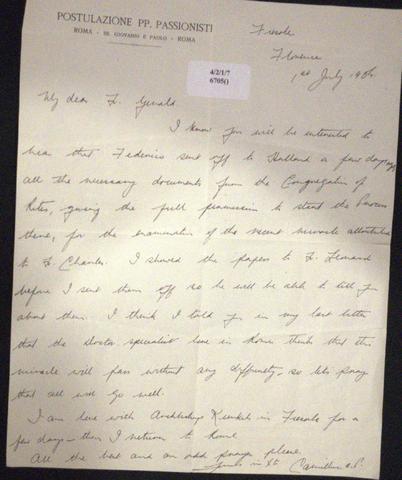 POSTULAZIONE PP. PASSIONISTI
ROMA - SS. GIOVANNI E PAOLO - ROMA
Fiesole
Florence
1st July 196
4/2/1/7
6705()
My dear Fr. Gerald.
I know you will be interested to
hear that Federico sent off to Holland a few days ago
all the necessary documents from the Congregation of
Rites, giving the full permission to start the Process
there, for the examination of the recent miracle attributed
to Fr. Charles. I showed the papers to Fr. Leonard
before I sent them off so he will be able to tell you
about them. I think I told you in my last letter
that the doctor specialist here in Rome thinks that this
miracle will pass without any difficulty, so let's pray
that all will go well.
I am here with Archbishop in Fiesole for a
few days - then I return to Rome.
All the best and an odd prayer please.
Yours in Xt Camillus C.P.